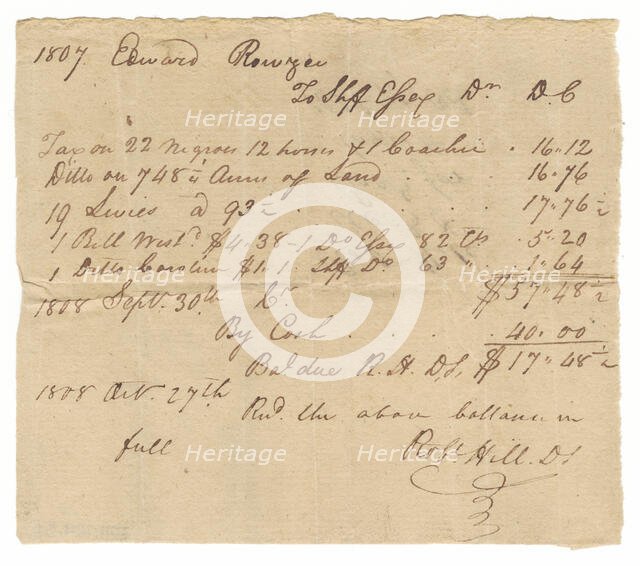 1807. Edward Rowzee
To Shff Essex Dr. D. C
Tax on 22 negroes 12 horses & 1 Coachee . 16.12
Ditto on 748 Acres of Land . 16.76
19 Levies @ 93½ . . . . . 17.76½
1 Bill West.d $4.38 - 1 Do Essex 82 Cts . 5.20
1 Ditto $1.1. Shff Do 63 " . 1.64
1808 Sept. 30th Cr. $57.48½
By Cash . . . . 40.00
Bal due R. H. D.S. $17.48½
1808 Oct. 27th
Recd. the above ballance in
full Robt Hill. DS
Heritage
Heritage
Heritage
Heritage
Heritage
Heritage
Heritage
Heritage
Heritage
©